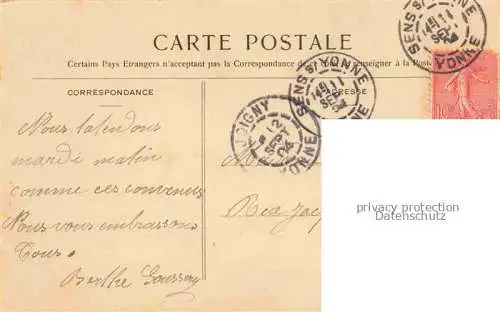 CARTE POSTALE
Certains Pays Etrangers n'acceptant pas la Correspondance de ce côté, se renseigner à la Post
CORRESPONDANCE
ADRESSE
SENS S/ YONNE
SEPT
SENS S/ YONNE
SEPT
JOIGNY
12
SEPT
04
YONNE
Nous t'attendons
mardi matin
comme ces convenus
Nous vous embrassons
Tous.
Berthe
privacy protection
Datenschutz